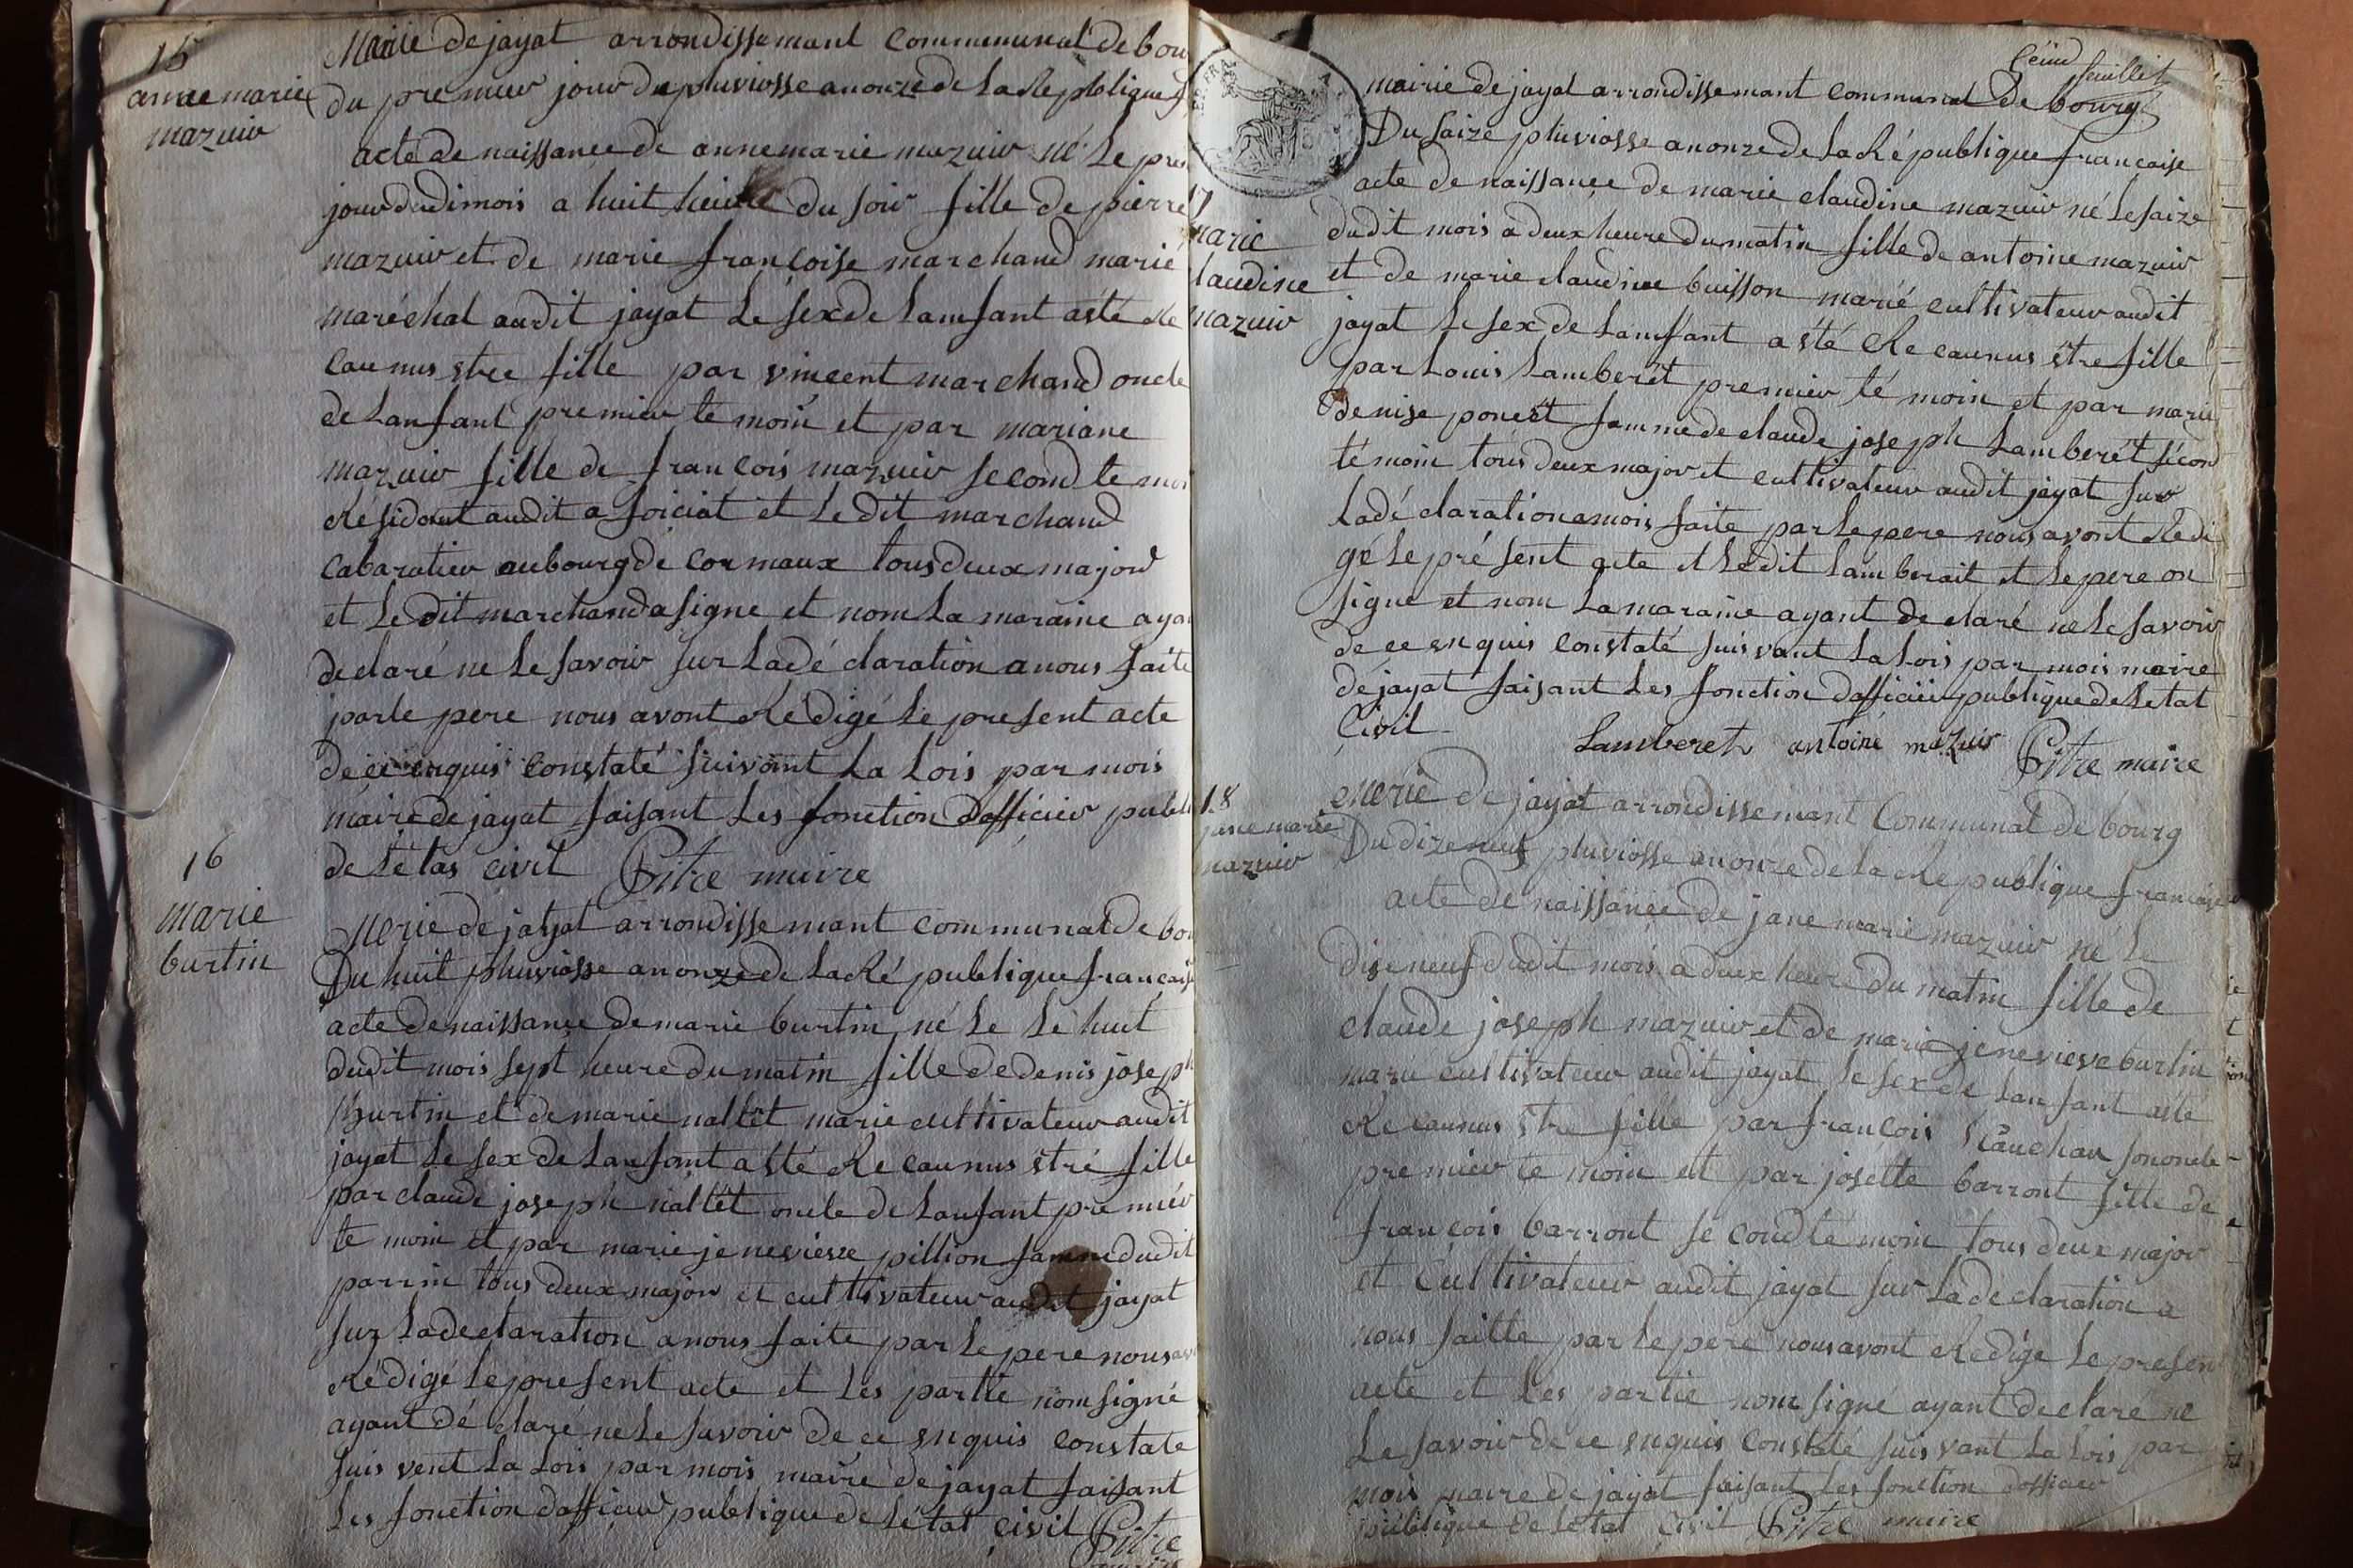 15
anne marie
mazuir
Mairie de jayat arrondissemant communnal de bour
du premier jour du pluviosse an onze de La Republique
acte de naissance de anne marie mazuir né Le pre
jour dudi mois a huit heure du soir fille de pierre
mazuir et de marie françoise marchand marié
maréchal audit jayat Le sex de Lamfant a sté Re
caunus stre fille par vincent marchand oncle
de Lanfant premier te moin et par mariane
mazuir fille de françois mazuir second te moi
Résidant audit a foiciat et Le dit marchand
cabaratier au bourg de cormaux tous deux major
et Le dit marchand a signe et nom La maraine aya
declaré ne Le savoir sur La dé claration a nous faite
par le pere nous avont Rédigé Le present acte
de ce enquis constaté suivant La Lois par mois
maire de jayat faisant Les fonction dofficier publi
de Létas civil Pitre maire
16
marie
burtin
Merie de jayat arrondissemant communal de bou
Du huit pluviosse an onze de La Ré publique français
acte de naissance de marie burtin né Le Le huit
dudit mois sept heure du matin fille de denis joseph
burtin et de marie naltet marie cultivateur audit
jayat Le sex de Lanfant a sté Re caunus stre fille
par claude joseph naltét oncle de Lanfant premiér
te moin et par marie jenevieve pillion famme dudit
parrin tous deux major et cultivateur audit jayat
sur La declaration a nous faite par Le pere nous av
Rédigé Le present acte et Les partie nom signé
ayant dé claré ne Le savoir de ce enquis constate
suis vent La Lois par mois maire de jayat faisant
Les fonction dofficier publique de Létat civil Pitre
maire
feuillet
17
marie
claudine
mazuir
mairie de jayat arrondissemant communal De bourg
Du saize pluviosse an onze de La République française
acte de naissance de marie claudine mazuir né Le saize
dudit mois a deux heure du matin fille de antoine mazuir
et de marie claudine buisson marié cultivateur audit
jayat Le sex de Lamfant a sté Re caunus être fille
par Louis Lamberét premier té moin et par marie
Denise poncét famme de claude joseph Lamberét sécon
té moin tous deux major et cultivateur audit jayat sur
La dé claration a mois faite par Le pere nous avont Redi
gé Le pré sent acte et Le dit Lamberait et Le pere on
signe et nom La maraine ayant de claré ne Le savoir
de ce enquis constaté suis vant La Lois par mois maire
de jayat faisant Les fonction dofficiér publique de Letat
Civil
Lamberet antoine mazuir Pitre maire
18
jane marie
mazuir
Merie de jayat arrondissemant Communal de bourg
Du dizeneuf pluviosse an onze de La Re publique française
acte de naissance de jane marie mazuir né Le
dizeneuf dudit mois a deux heure du matin fille de
claude joseph mazuir et de marie jenevieve burtin
marié cultivateur audit jayat Le sex de Lanfant a sté
Re caunus stre fille par françois son oncle
premier te moin et par josette barront fille de
françois barront se cond té moin tous deux major
et cultivateur audit jayat sur La de claration a
nous faitte par Le pere nous avont Redige Le presen
acte et Les partie nom signé ayant declaré ne
Le savoir de ce enquis constaté suis vant La Lois par
mois maire de jayat faisant Les fonction dofficier
publique de Létat Civil Pitre maire